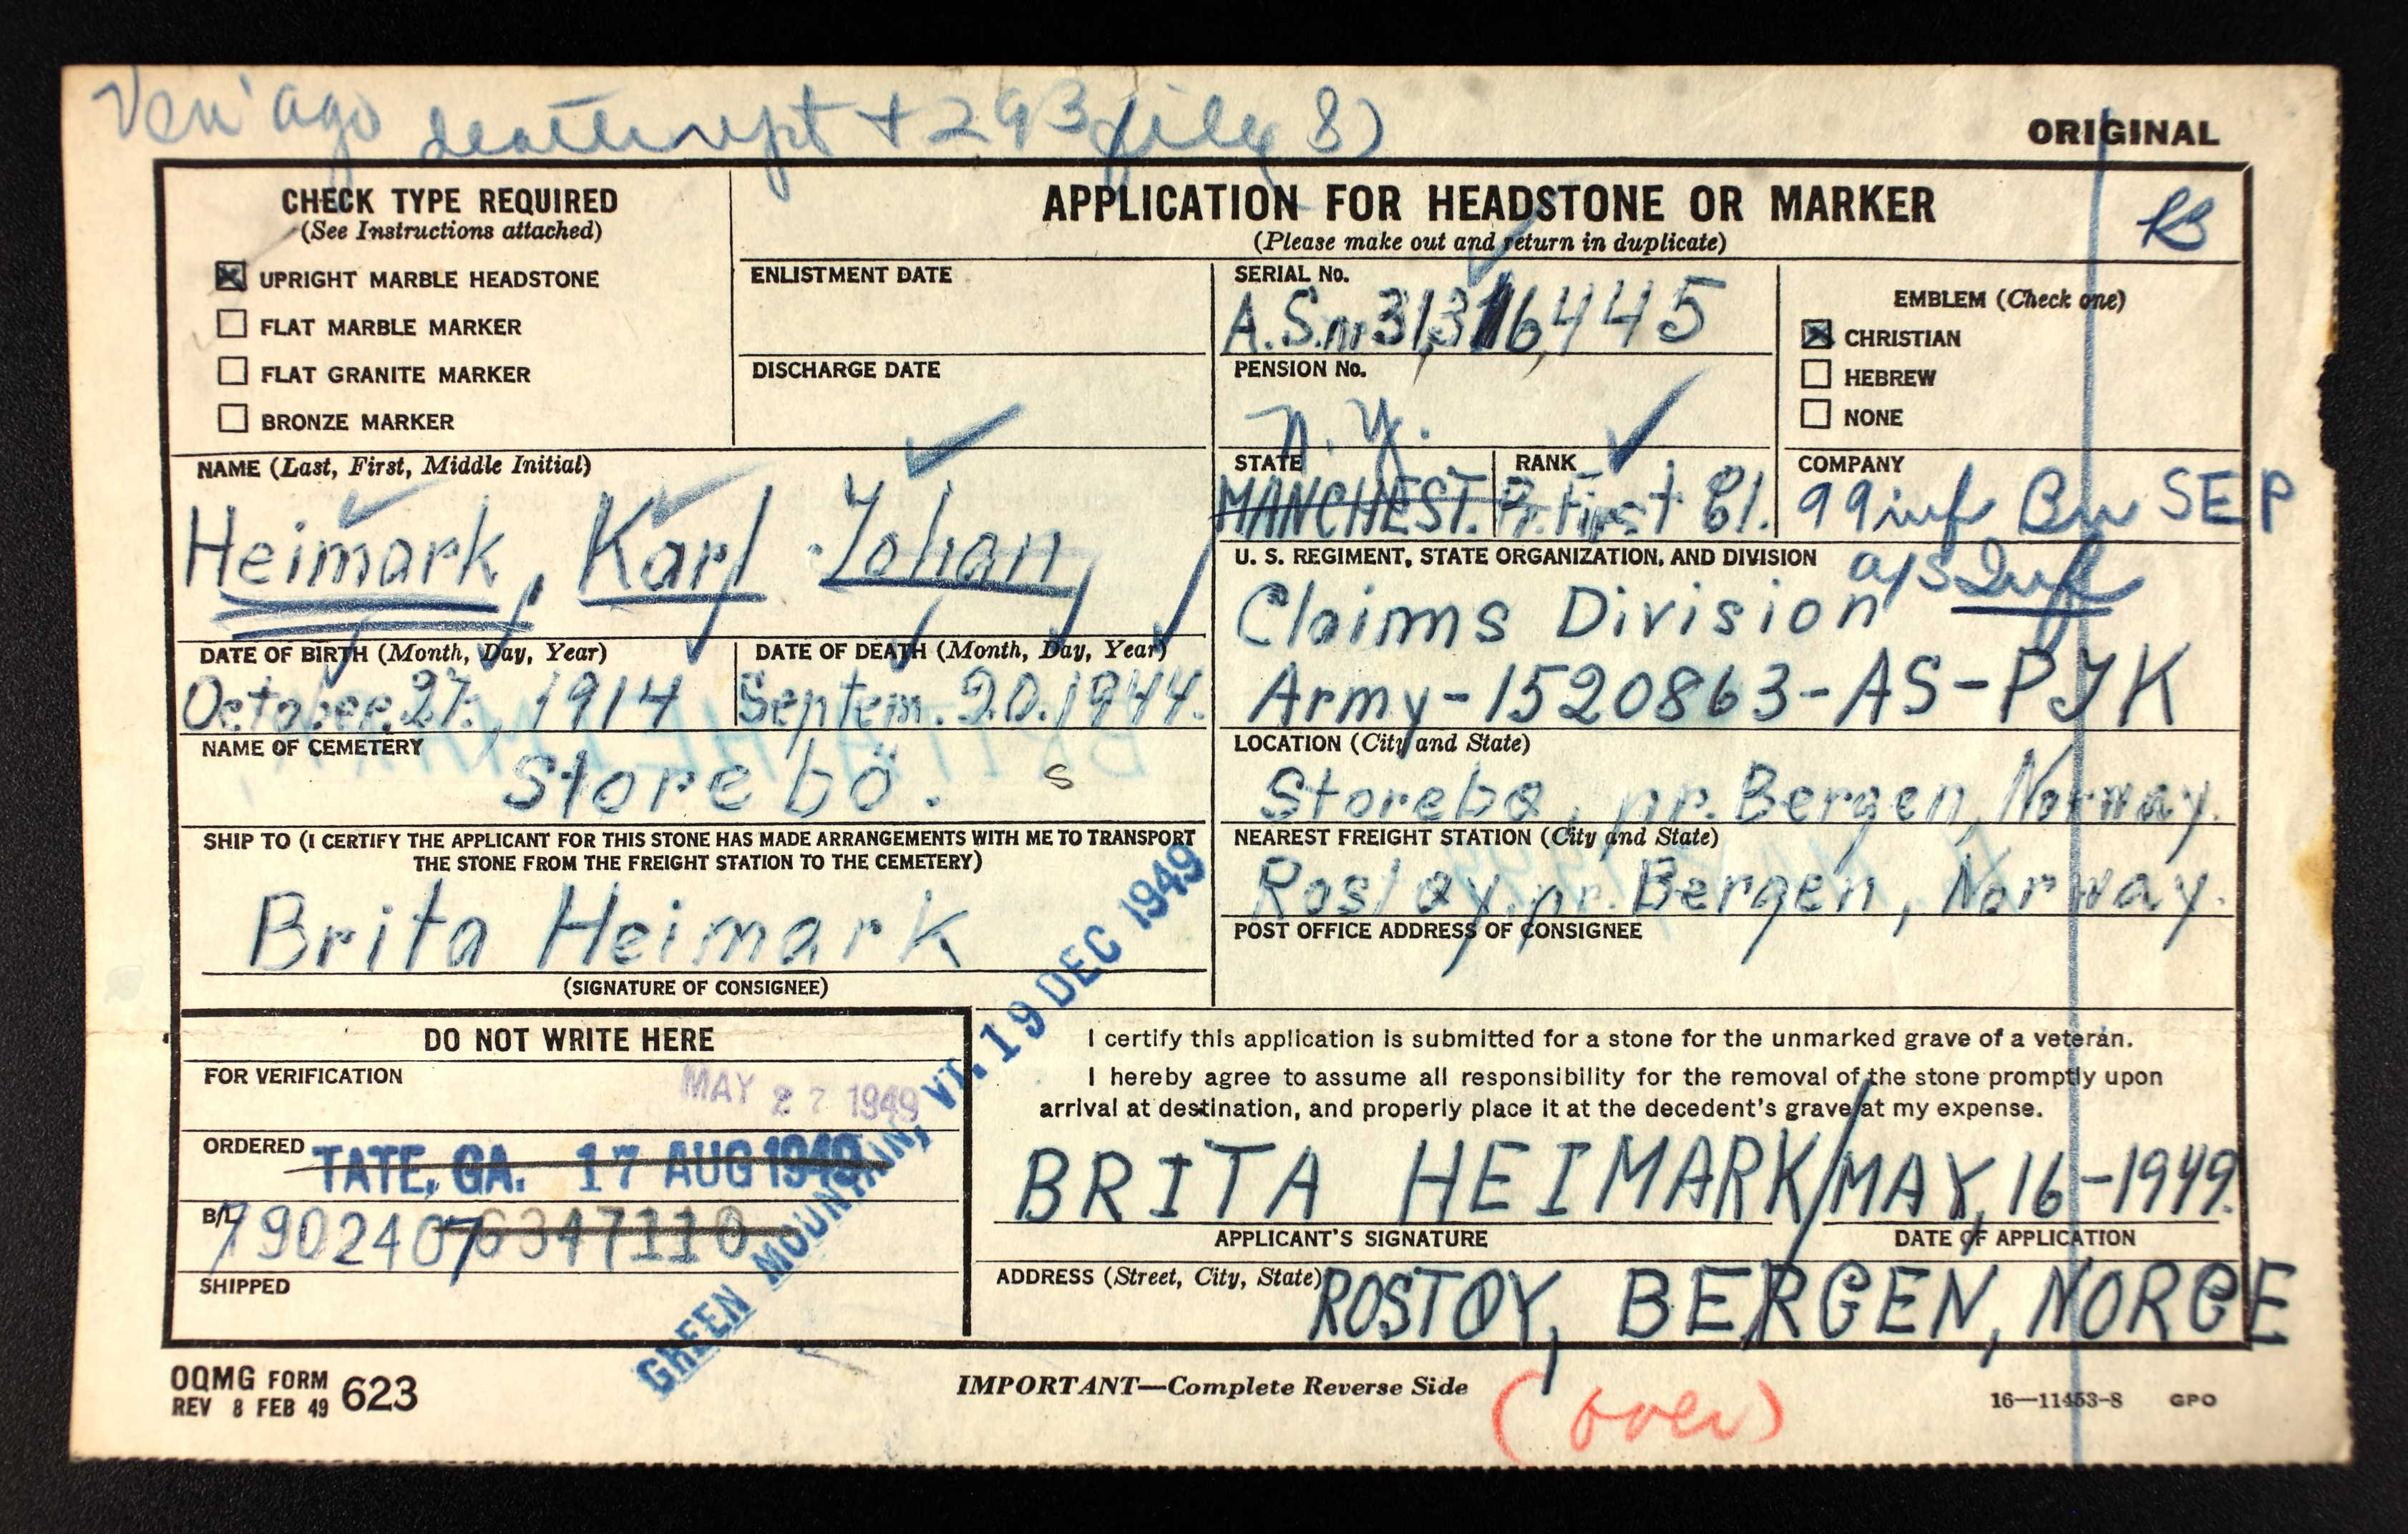 Ven ago death rept + 293 file 8)
ORIGINAL
CHECK TYPE REQUIRED
(See Instructions attached)
UPRIGHT MARBLE HEADSTONE
FLAT MARBLE MARKER
FLAT GRANITE MARKER
BRONZE MARKER
APPLICATION FOR HEADSTONE OR MARKER
(Please make out and return in duplicate)
ENLISTMENT DATE
DISCHARGE DATE
SERIAL No.
A.S.nr 31,316,445
PENSION No.
EMBLEM (Check one)
CHRISTIAN
HEBREW
NONE
NAME (Last, First, Middle Initial)
Heimark, Karl Johan
N.Y.
STATE
MANCHEST.
RANK
Pr. First Cl.
COMPANY
99 inf Bn SEP
U. S. REGIMENT, STATE ORGANIZATION, AND DIVISION
a/s Inf
Claims Division
Army-1520863-AS-PJK
DATE OF BIRTH (Month, Day, Year)
October. 27., 1914
DATE OF DEATH (Month, Day, Year)
Septem. 20. 1944.
NAME OF CEMETERY
Storebö. S
LOCATION (City and State)
Storebø, pr. Bergen, Norway.
SHIP TO (I CERTIFY THE APPLICANT FOR THIS STONE HAS MADE ARRANGEMENTS WITH ME TO TRANSPORT
THE STONE FROM THE FREIGHT STATION TO THE CEMETERY)
Brita Heimark
(SIGNATURE OF CONSIGNEE)
NEAREST FREIGHT STATION (City and State)
Rostøy, pr. Bergen, Norway.
POST OFFICE ADDRESS OF CONSIGNEE
DO NOT WRITE HERE
FOR VERIFICATION
MAY 27 1949
ORDERED
TATE, GA. 17 AUG 1949
B/L
7902407 6347110
SHIPPED
GREEN MOUNTAIN, VT. 19 DEC 1949
I certify this application is submitted for a stone for the unmarked grave of a veteran.
I hereby agree to assume all responsibility for the removal of the stone promptly upon
arrival at destination, and properly place it at the decedent's grave at my expense.
BRITA HEIMARK / MAY, 16-1949.
APPLICANT'S SIGNATURE
DATE OF APPLICATION
ADDRESS (Street, City, State)
ROSTØY, BERGEN, NORGE
OQMG FORM 623
REV 8 FEB 49
IMPORTANT—Complete Reverse Side
(over)
16—11453-8 GPO